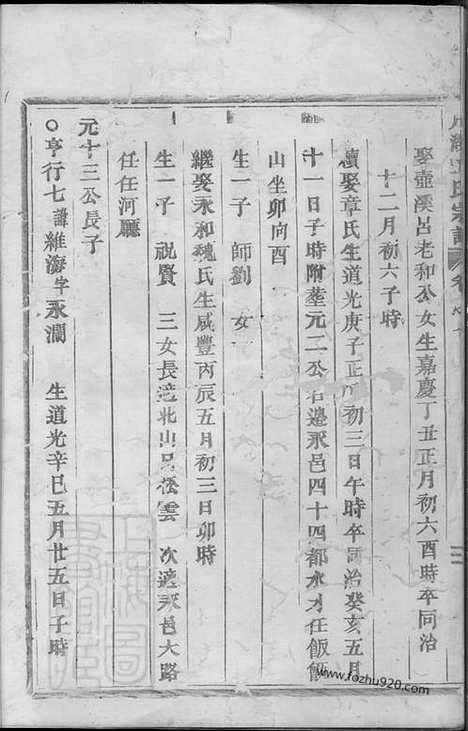 氏宗譜
娶壺溪呂老和公女生嘉慶丁丑正月初六酉時卒同治
十二月初六子時
續娶章氏生道光庚子正月初三日午時卒同治癸亥五月
十一日子時附塟元二公右邊永邑四十四都水才任飯甑
山坐卯向酉
生一子 師劉 女一
繼娶永和魏氏生咸豐丙辰五月初三日卯時
生一子 祝賢 三女長適北山呂松雲 次適永邑大路
任任河廳
元十三公長子
○亨行七諱維海字永瀾 生道光辛巳五月廿五日子時
www.fozhu920.com